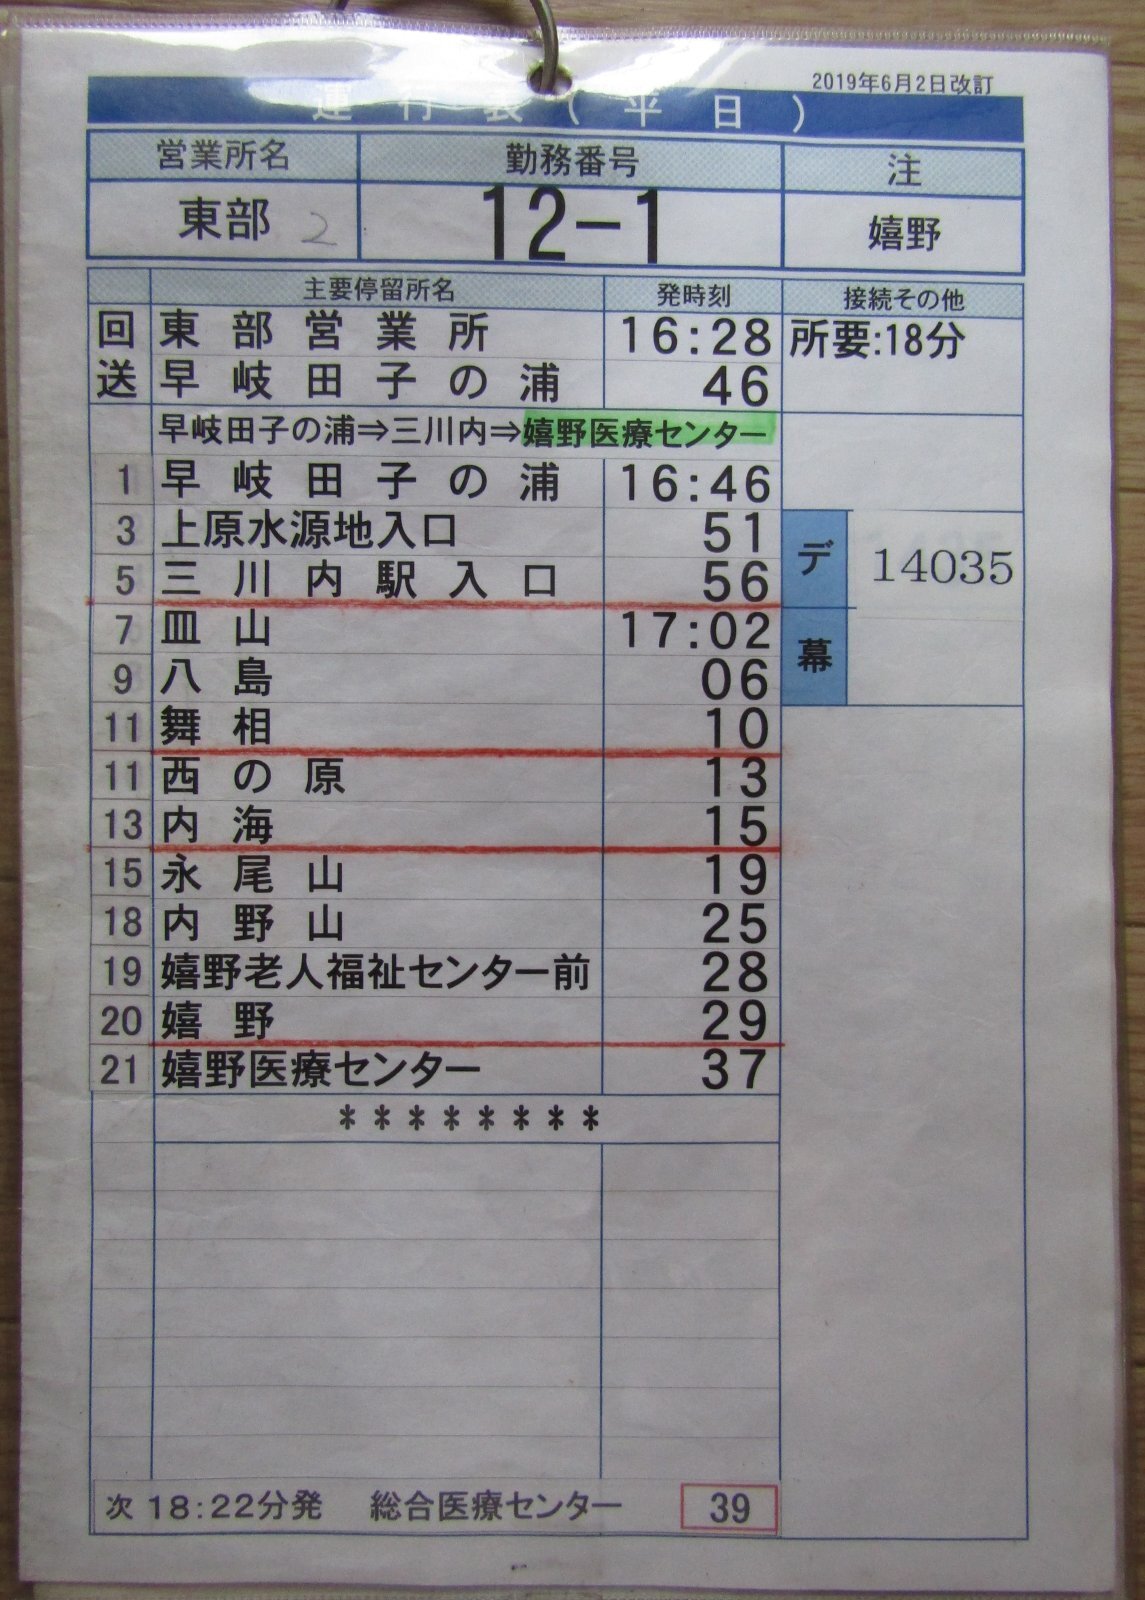 2019年6月2日改訂
運行表(平日)
営業所名 勤務番号 注
東部 2 12-1 嬉野
主要停留所名 発時刻 接続その他
回 東部営業所 16:28 所要:18分
送 早岐田子の浦 46
早岐田子の浦⇒三川内⇒嬉野医療センター
1 早岐田子の浦 16:46
3 上原水源地入口 51
デ 14035
5 三川内駅入口 56
7 皿山 17:02
幕
9 八島 06
11 舞相 10
11 西の原 13
13 内海 15
15 永尾山 19
18 内野山 25
19 嬉野老人福祉センター前 28
20 嬉野 29
21 嬉野医療センター 37
********
次 18:22分発 総合医療センター 39